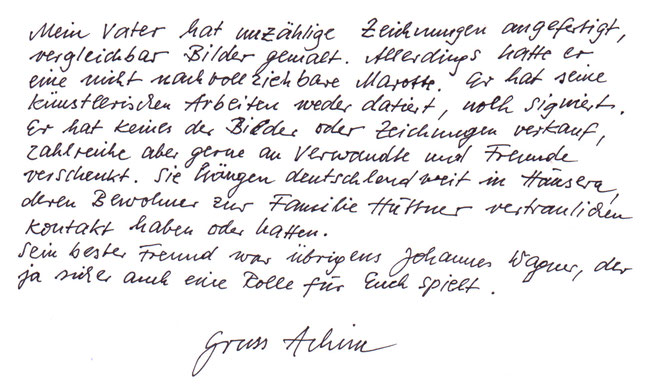 Mein Vater hat unzählige Zeichnungen angefertigt,
vergleichbar Bilder gemalt. Allerdings hatte er
eine nicht nachvollziehbare Marotte. Er hat seine
künstlerischen Arbeiten weder datiert, noch signiert.
Er hat keines der Bilder oder Zeichungen verkauf,
zahlreihe aber gerne an Verwandte und Freunde
verschenkt. Sie hängen deutschlandweit in Häusern,
deren Bewohner zur Familie Hüttner vertraulichen
Kontakt haben oder hatten.
Sein bester Freund war übrigens Johannes Wagner, der
ja sicher auch eine Rolle für Euch spielt.
Gruss Achim